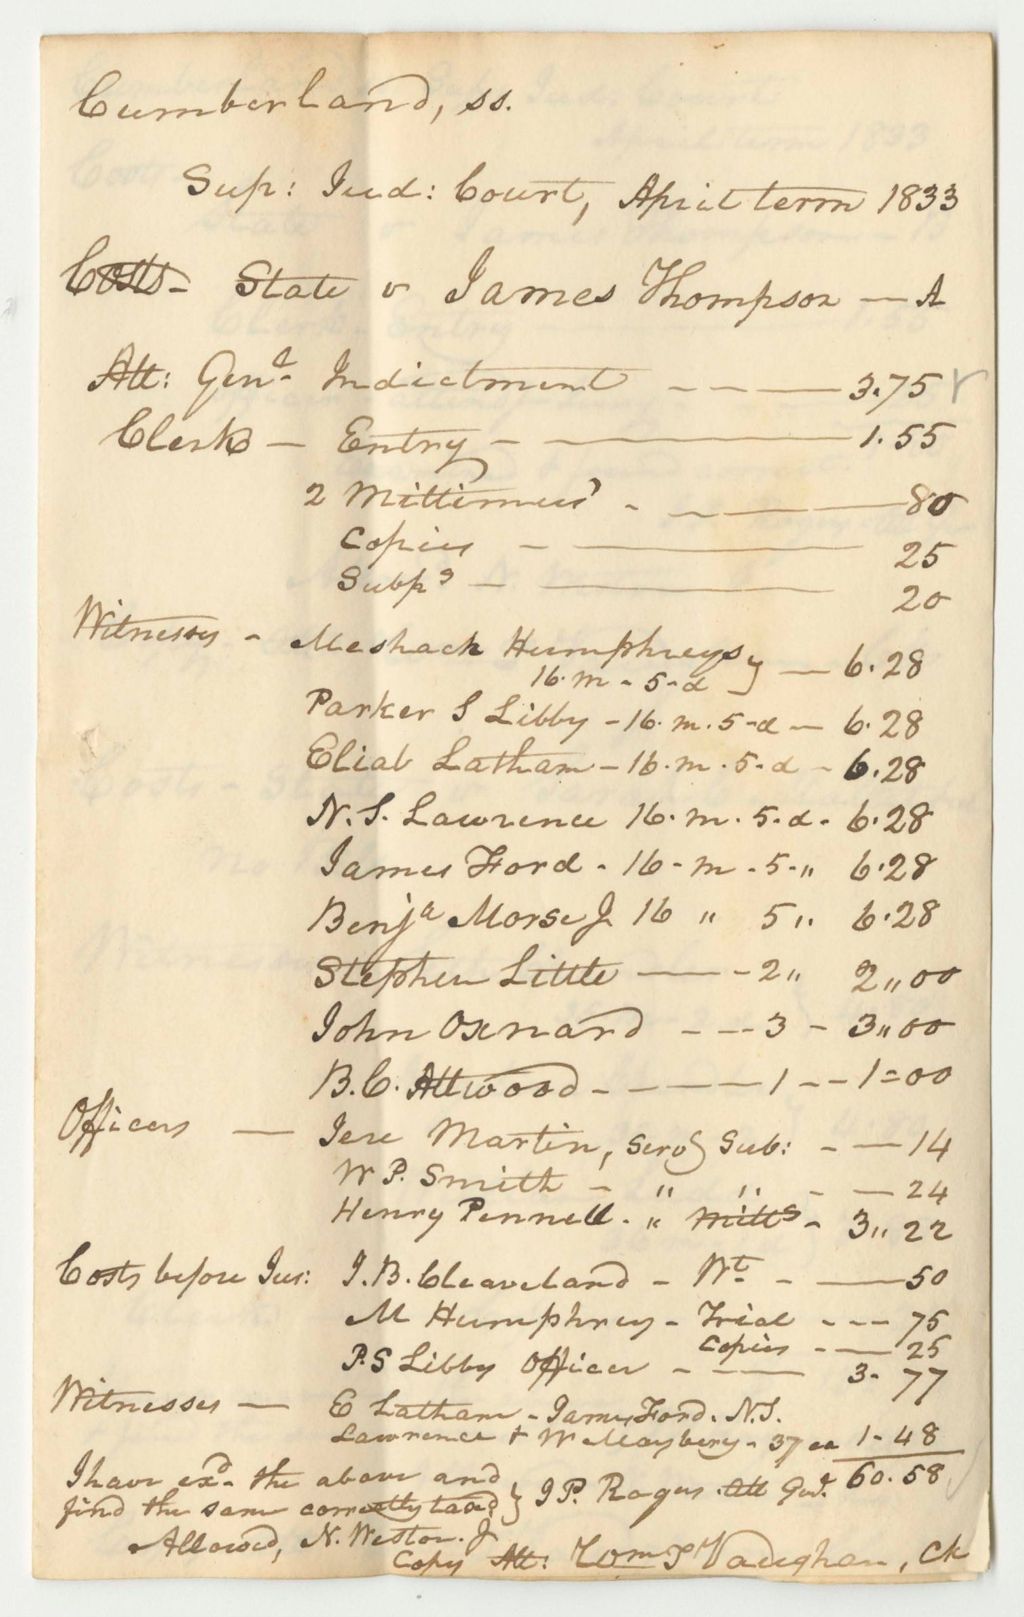 Cumberland, ss.
Sup: Jud: Court, April term 1833
Costs - State v James Thompson — A
Att: Genl. Indictment - - — 3.75
Clerks — Entry - — 1.55
2 Mittimus' - - — — 80
Copies - — 25
Subps — — 20
Witnesses - Meshack Humphreys } — 6.28
16.m - 5-d
Parker S Libby - 16.m.5-d — 6.28
Eliab Latham - 16.m.5.d - 6.28
N.S. Lawrence 16.m.5.d. 6.28
James Ford - 16-m-5-" 6.28
Benja Morse J. 16 " 5 " 6.28
Stephen Little — - 2 " 2 " 00
John Oxnard - - - 3 - 3 " 00
B.C. Attwood - - — 1 - - 1 = 00
Officers — Jere Martin, serg Sub: - — 14
W P. Smith - " " - — 24
Henry Pennell. " Mitts - 3 " 22
Costs before Jus: J.B. Cleaveland - Wt. - — 50
M Humphrey - Trial - - - 75
Copies - — 25
P.S Libby Officer - - — 3. 77
Witnesses — E Latham - James Ford. N.S.
Lawrence + W Maybery - 37 ea 1-48
60.58
I have exd. the above and
find the same correctly taxed } J P. Rogers. Att Genl.
Allowed, N. Weston. J
Copy Att: Vaughan, Ck